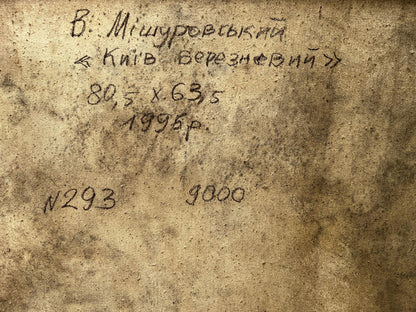 В. Мішуровський
« Київ березневий »
80,5 х 63,5
1995р.
N293 9000